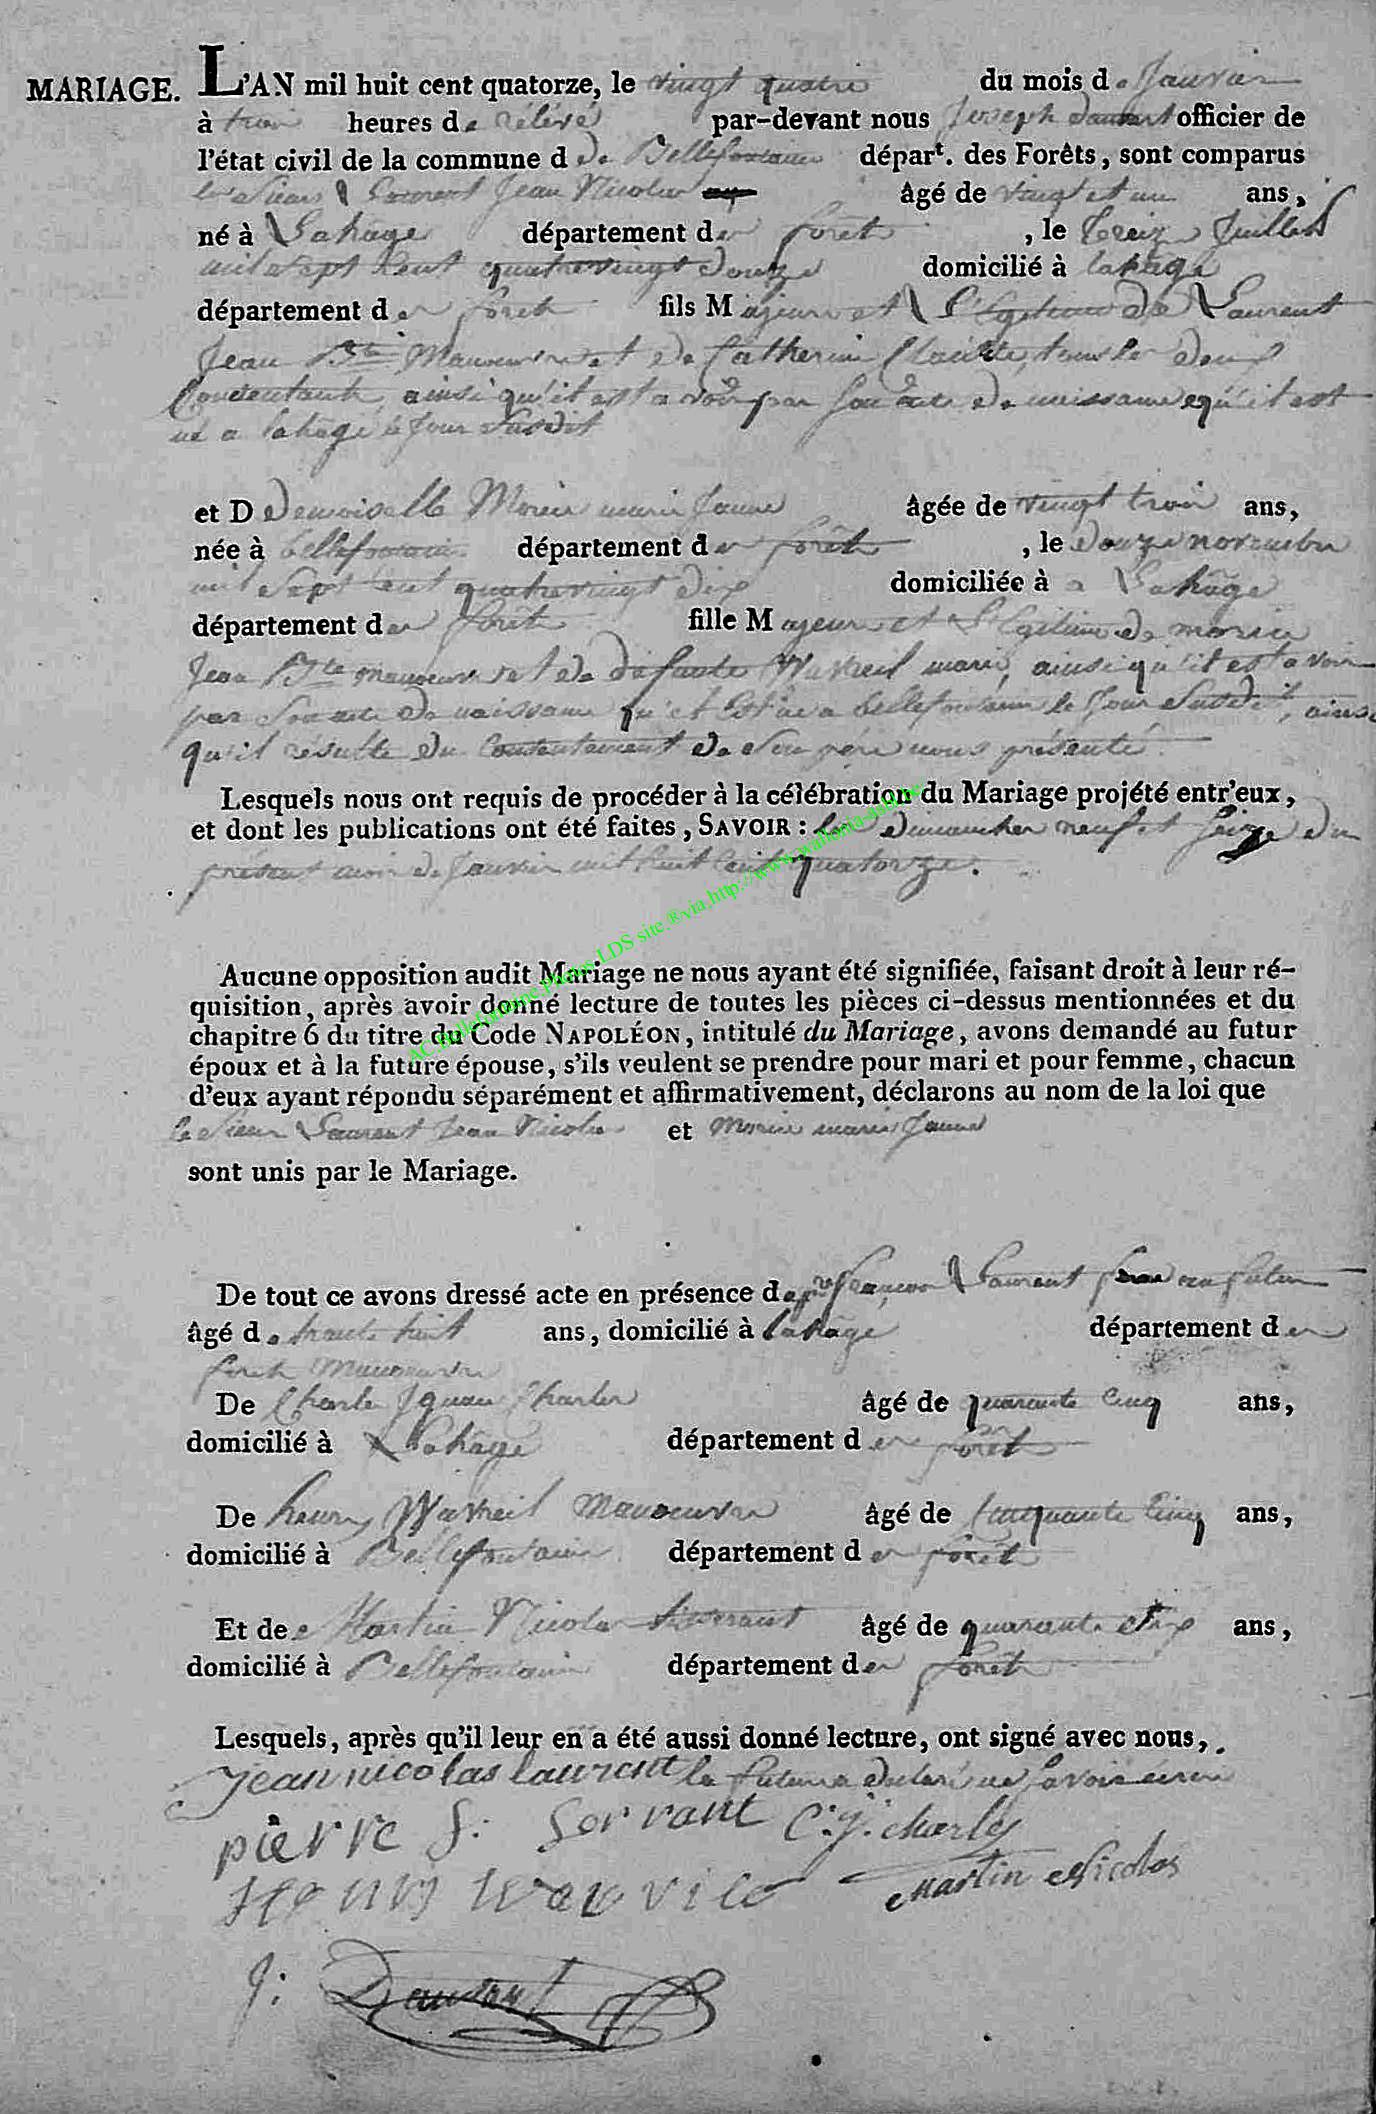 MARIAGE. L'AN mil huit cent quatorze, le vingt quatre du mois de Janvier
à trois heures de rélévé par-devant nous Joseph officier de
l'état civil de la commune d de Bellefontaine départ. des Forêts, sont comparus
le Sieur Laurent Jean Nicolas âgé de vingt et un ans,
né à Lahage département des forêts, le treize Juillet
mil sept cent quatrevingt douze domicilié à lahage
département des forêts fils Majeur et Légitime de Laurent
Jean Bte Manoeuvre et de Catherine tous les deux
Consentants, ainsi qu'il est a voir par son acte de naissance qu'il est
né a lahage le Jour Susdit
et D Demoiselle Morin marie Janne âgée de vingt trois ans,
née à bellefontaine département des forêts, le douze novembre
mil Sept cent quatrevingt dix domiciliée à a Lahage
département des forêts fille Majeur et Légitime de morin
Jean Bte manoeuvre et de défunte Watreil marie, ainsi qu'il est a voir
par Son acte de naissance qu'el est née a bellefontaine le Jour Susdit, ainsi
qu'il résulte du Consentement de Son père nous présenté.
Lesquels nous ont requis de procéder à la célébration du Mariage projété entr'eux,
et dont les publications ont été faites, SAVOIR : les dimanches neuf et Seize du
présent mois de Janvier mil huit Cent quatorze.
Aucune opposition audit Mariage ne nous ayant été signifiée, faisant droit à leur ré-
quisition, après avoir donné lecture de toutes les pièces ci-dessus mentionnées et du
chapitre 6 du titre du Code NAPOLÉON, intitulé du Mariage, avons demandé au futur
époux et à la future épouse, s'ils veulent se prendre pour mari et pour femme, chacun
d'eux ayant répondu séparément et affirmativement, déclarons au nom de la loi que
le Sieur Laurent Jean Nicolas et Morin marie Janne
sont unis par le Mariage.
De tout ce avons dressé acte en présence de Laurent au futur
âgé de trente huit ans, domicilié à lahage département des
forêts Manoeuvre
De Charle Ignace Charles âgé de quarante Cinq ans,
domicilié à Lahage département des forêts
De henry Watreil Manoeuvre âgé de Cinquante Cinq ans,
domicilié à Bellefontaine département des forêts
Et de Martin Nicolas âgé de quarante ans,
domicilié à Bellefontaine département des forêts
Lesquels, après qu'il leur en a été aussi donné lecture, ont signé avec nous,
jean nicolas laurent la future a déclaré ne savoir écrire
pierre f: Servant C: j: charles
Henry Martin Nicolas
J: Dausart
AC Bellefontaine Photos LDS site ®via http://www.wallonia-asbl.be/